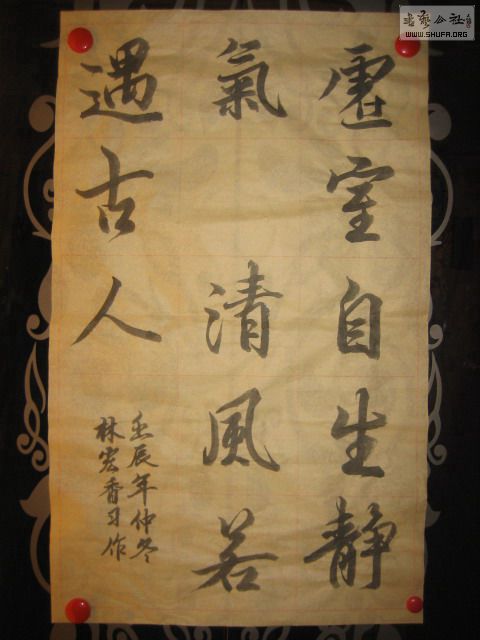 虛室自生静
氣 清風若
遇古人
壬辰年仲冬
林宏香习作
书艺公社
WWW.SHUFA.ORG